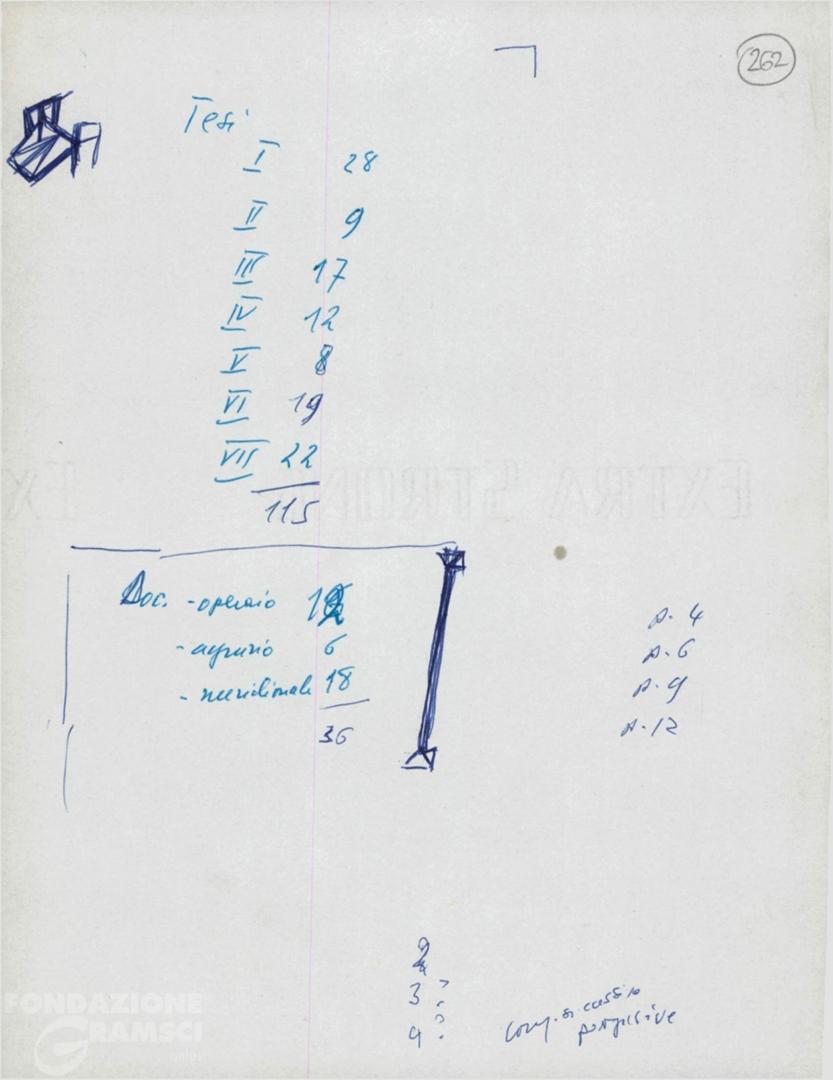 262
Tesi
I 28
II 9
III 17
IV 12
V 8
VI 19
VII 22
115
EXTRA STRONG EX
Doc. - operaio 12
- agrario 6
- meridionale 18
36
A. 4
A. 6
A. 9
A. 12
2
3 ?
4 ?
FONDAZIONE
GRAMSCI
onlus